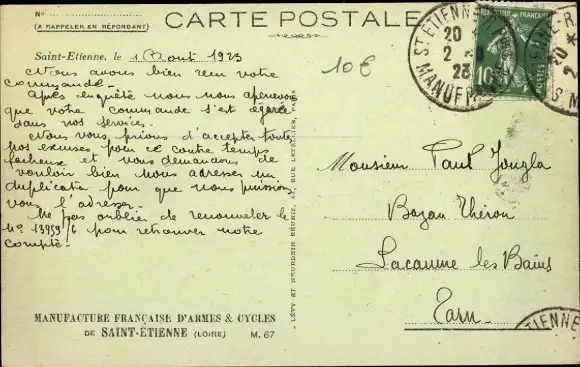 N°
(A RAPPELER EN RÉPONDANT)
CARTE POSTALE
Saint-Etienne, le 1 Aout 1923
Nous avons bien reçu votre
commande.
Après enquête nous nous apercevons
que votre commande s'est égarée
dans nos services.
Nous vous prions d'accepter toutes
nos excuses pour ce contre temps
facheux et vous demandons de
vouloir bien nous adresser un
duplicata pour que nous puissions
vous l'adresser.
Ne pas oublier de renouveler le
N° 13959/6 pour retrouver notre
compte.
MANUFACTURE FRANÇAISE D'ARMES & CYCLES
DE SAINT-ÉTIENNE (LOIRE) M. 67
LÉVY ET NEURDEIN RÉUNIS, 44, RUE LETELLIER, PARIS
10€
ST ETIENNE
20
2
23
MANUF
FRANÇAISE
10
POSTES
20
Monsieur Paul Jougla
Bazar Théron
Lacaune les Bains
Tarn
TIENNE